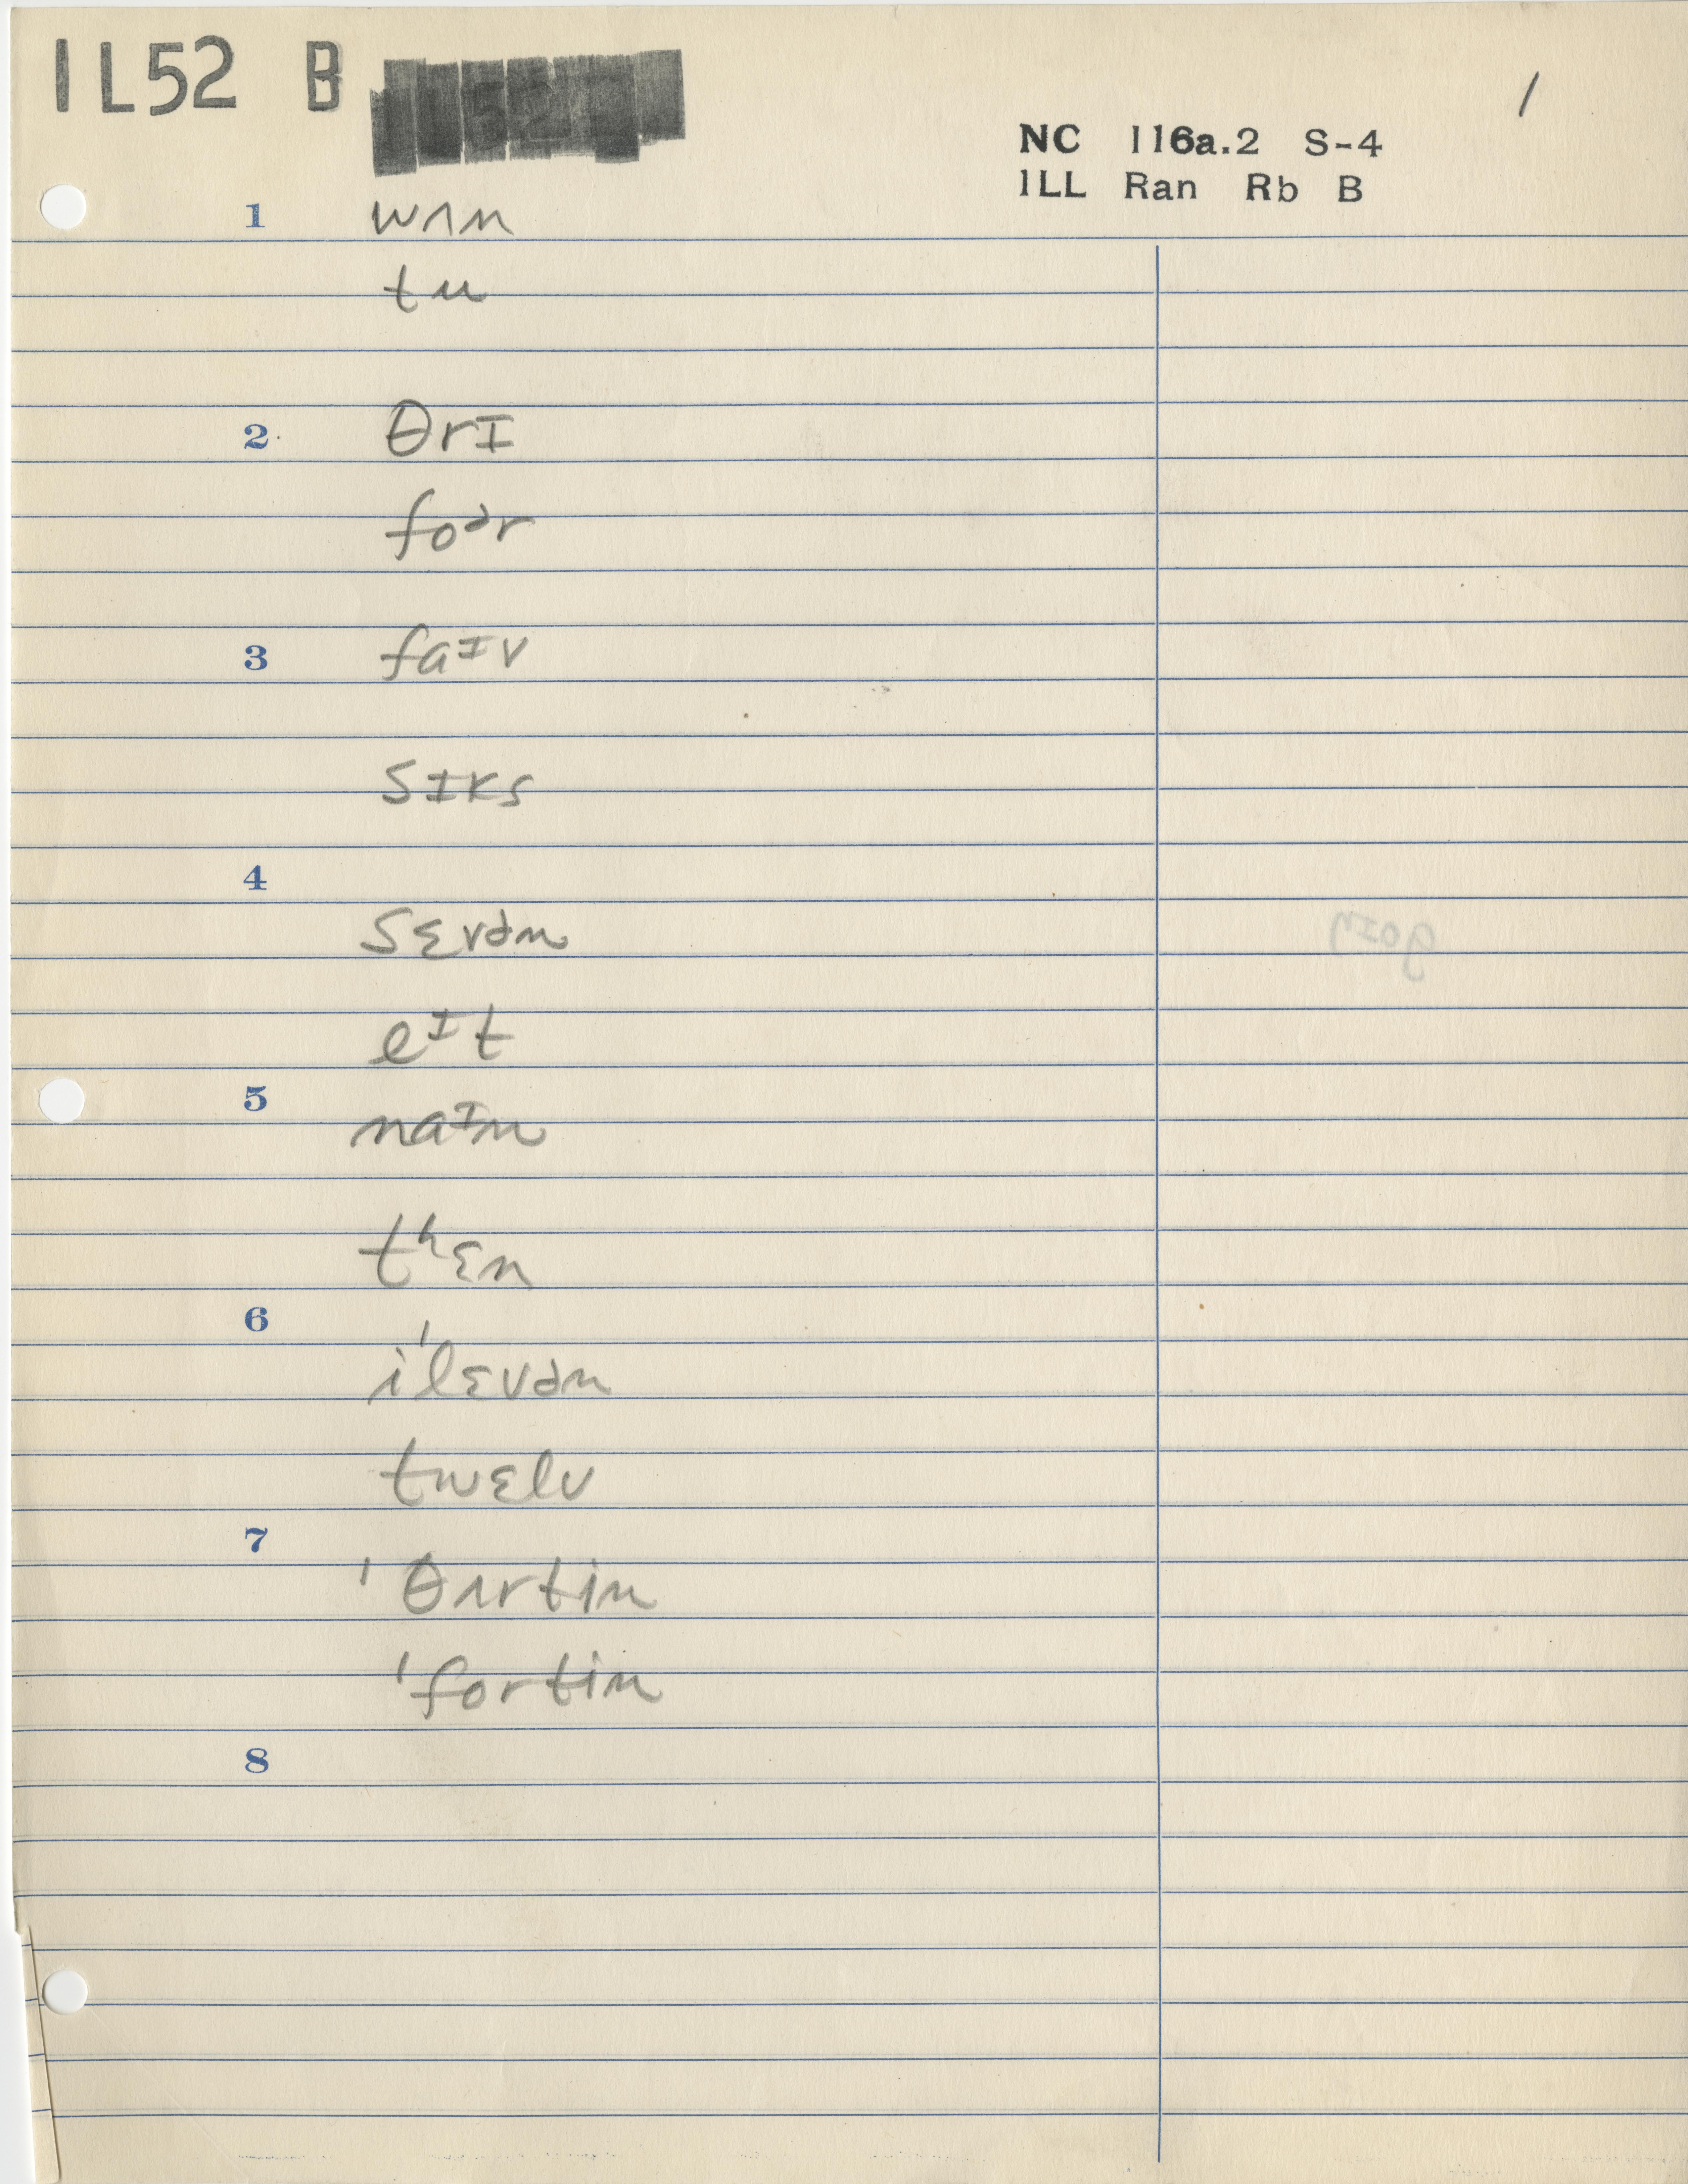 IL52 B
1
NC 116a.2 S-4
ILL Ran Rb B
1 wʌn
tu
2 θrɪ
foᵊr
3 faᶦv
sɪks
4
sɛvən
eᶦt
5 naᶦn
tʰɛn
6
iˈlɛvən
twɛlv
7
ˈθʌrtin
ˈfortin
8